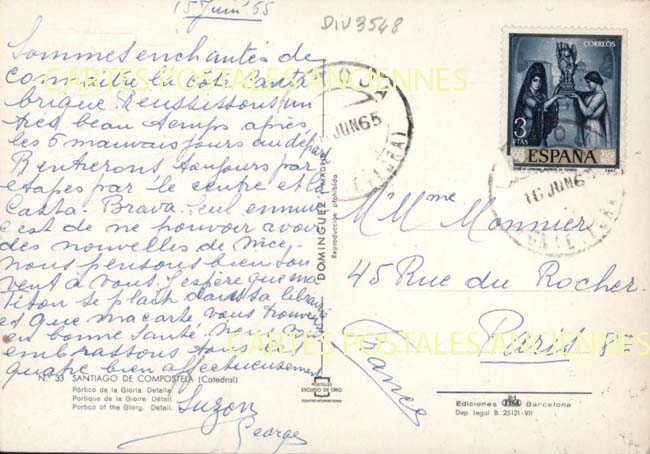 15 Juin 65
DIV3548
Sommes enchantés de
connaitre la côte Canta-
brique Réussissons un
très beau temps après
les 6 mauvais jours au départ
Rentrerons toujours par
étapes par le centre et la
Costa-Brava. Seul ennui
c'est de ne pouvoir avoir
des nouvelles de Nice,
nous pensons bien sou
vent à vous. J'espère que ma
Titon se plait dans sa librairie
et que ma carte vous trouvera
en bonne santé. Nous vous
embrassons tous les
quatre bien affectueusement
Suzon
Georges
N.° 33 SANTIAGO DE COMPOSTELA (Catedral)
Pórtico de la Gloria. Detalle
Portique de la Gloire. Détail.
Portico of the Glory. Detail.
DOMINGUEZ
Reproducción prohibida
POSTALES
ESCUDO DE ORO
CORREOS
3
PTAS
ESPAÑA
JUN 65
16 JUN 6
M. Mme Monnier
45 Rue du Rocher.
Paris 8e
France
Ediciones FISA Barcelona
Dep. Legal B. 25121-VII
CARTES POSTALES ANCIENNES
CARTES POSTALES ANCIENNES